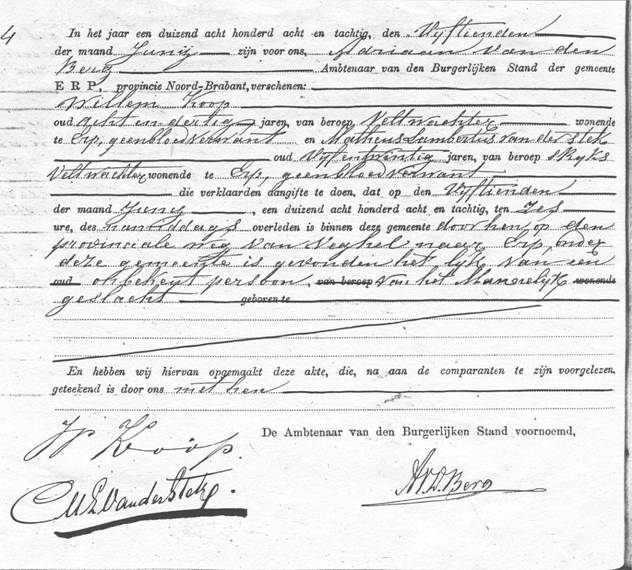 4
In het jaar een duizend acht honderd acht en tachtig, den Vyftienden
der maand Junij zijn voor ons, Adriaan van den
Berg Ambtenaar van den Burgerlijken Stand der gemeente
ERP, provincie Noord-Brabant, verschenen:
Willem Koop
oud Acht en dertig jaren, van beroep Veltwachter wonende
te Erp, geen bloedverwant en Matheus Lambertus van der Stek
oud Vyf en twintig jaren, van beroep Ryks
Veltwachter wonende te Erp, geen bloedverwant
die verklaarden aangifte te doen, dat op den Vyftienden
der maand Juny, een duizend acht honderd acht en tachtig, ten Zes
ure, des namiddags overleden is binnen deze gemeente door hen op den
provinciale weg van Veghel naar Erp, onder
deze gemeente is gevonden het lyk van een
oud onbekent persoon, van beroep van het Mannelyk wonende
geslacht geboren te
En hebben wij hiervan opgemaakt deze akte, die, na aan de comparanten te zijn voorgelezen,
geteekend is door ons met hen
De Ambtenaar van den Burgerlijken Stand voornoemd,
W Koop.
M L Van der Stek.
A v. D. Berg